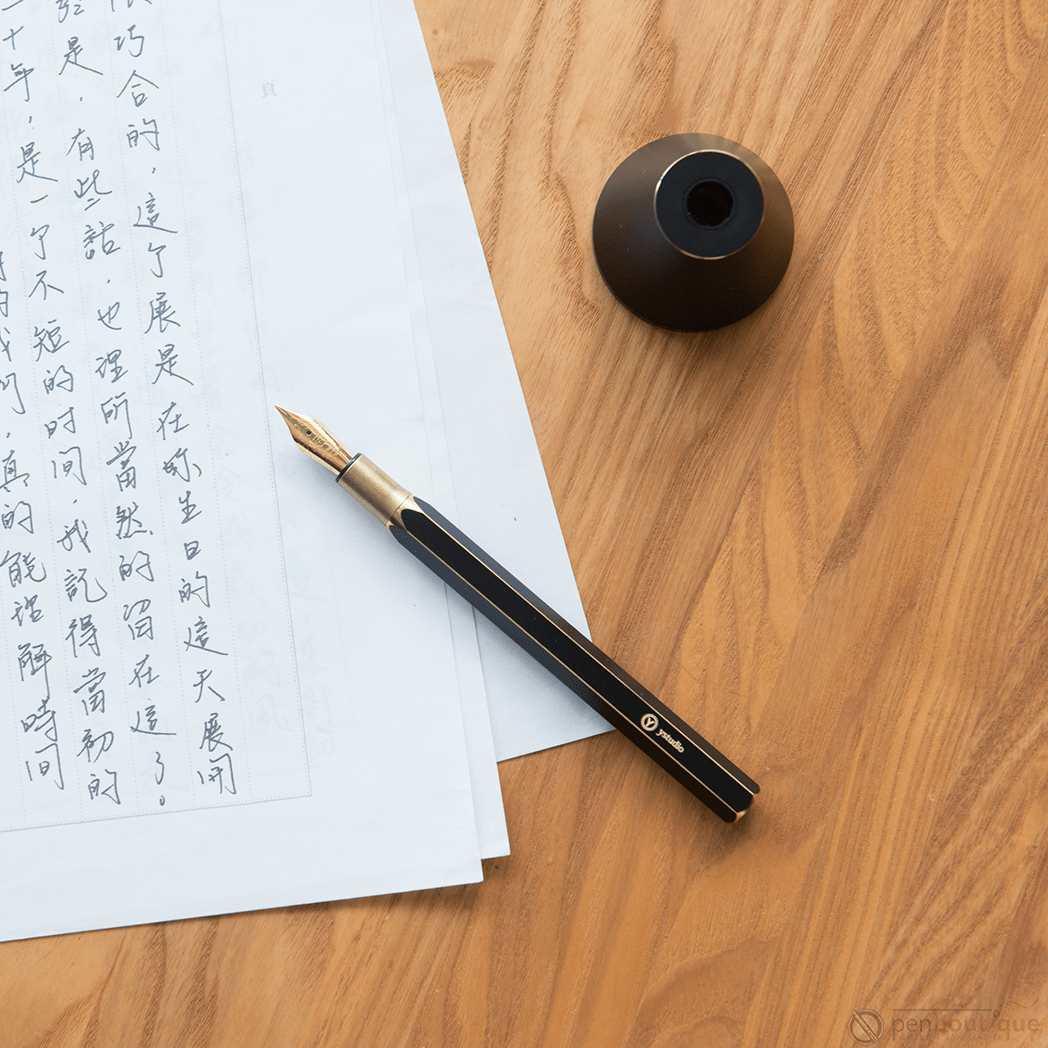 很巧合的，這个展是在妳生日的這天展開
於是，有些話，也理所當然的留在這了。
二十年，是一个不短的时间，我記得當初的
的我们，真的能理解時間
頁
ystudio
penboutique